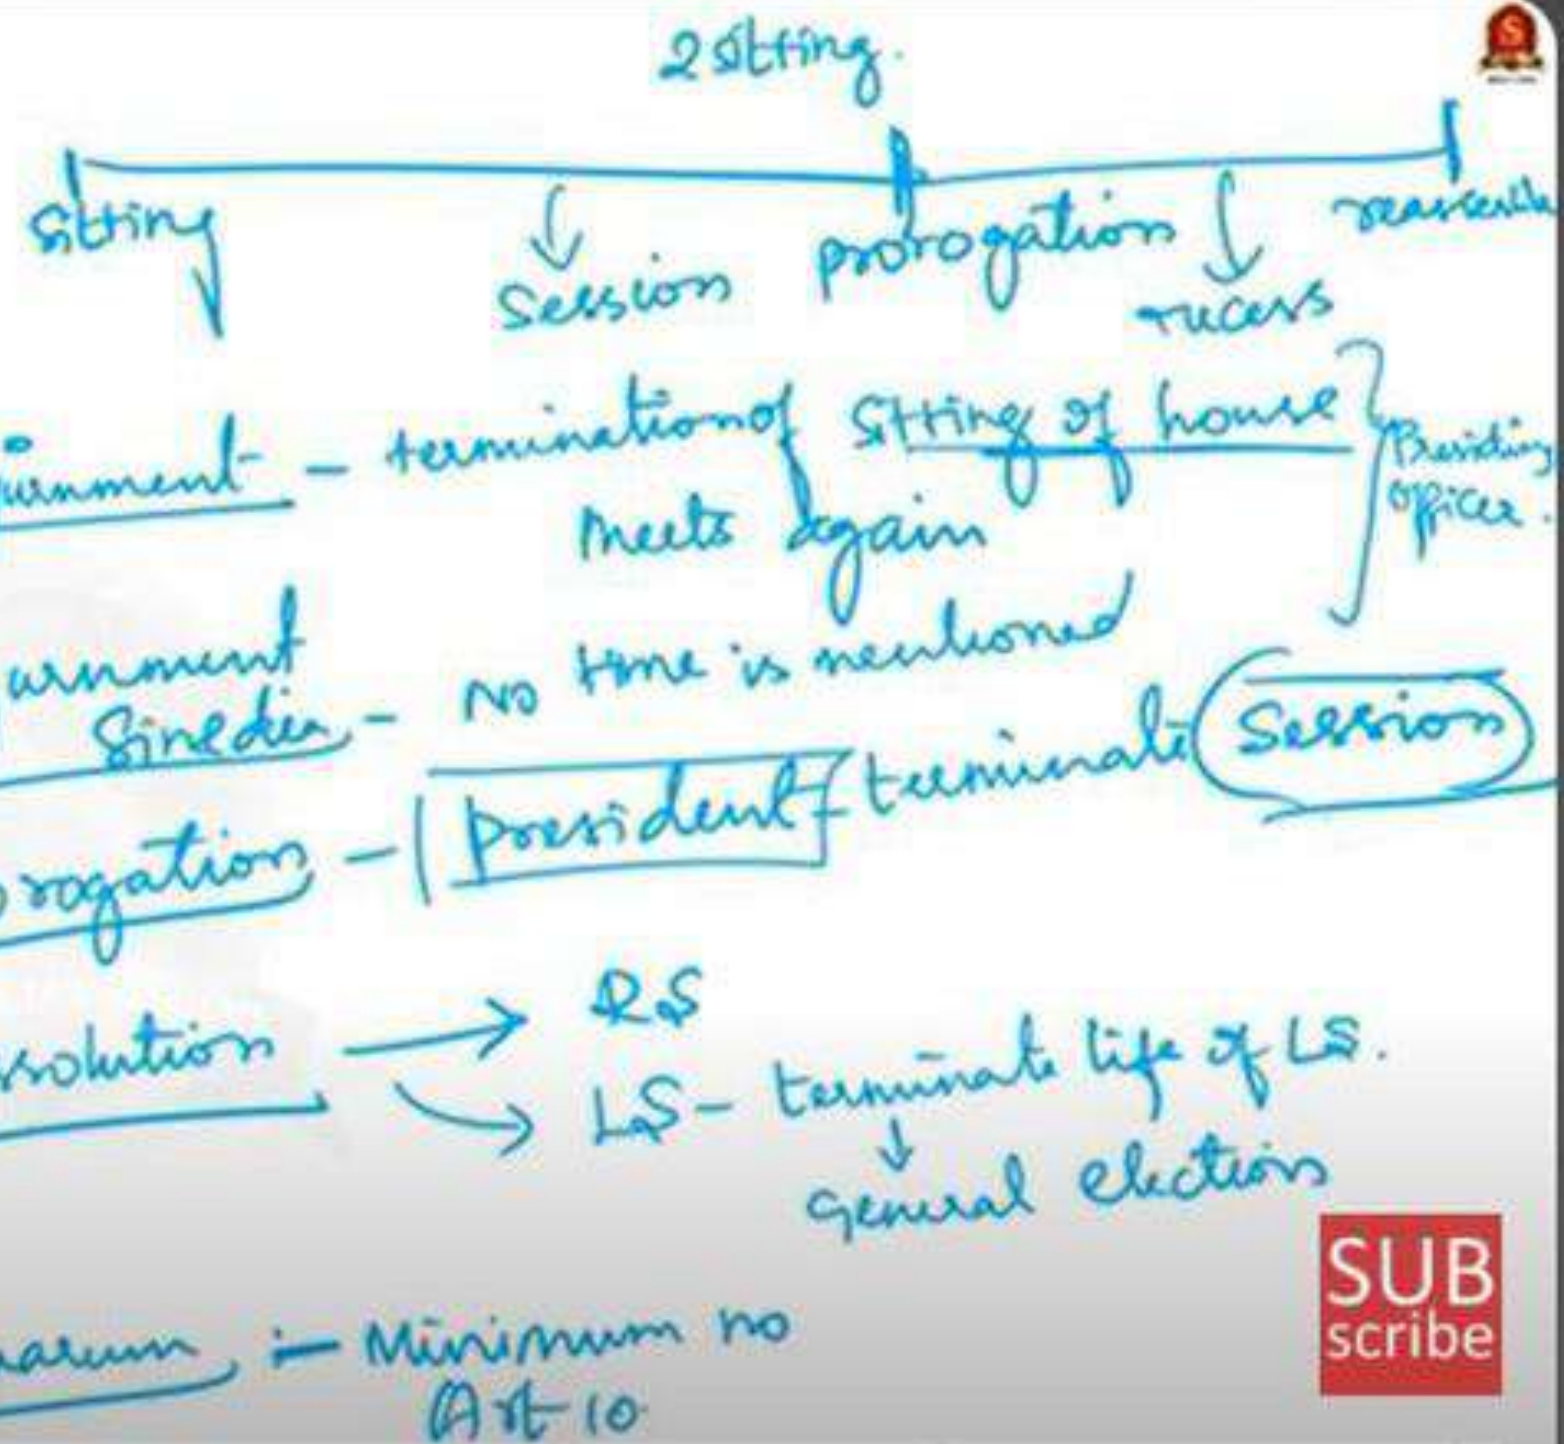 2 sitting.
sitting
session
prorogation
recess
urnment - termination of sitting of house
meets again
Presiding officer.
urnment
Sinedie - No time is mentioned
rogation - president - terminate session
ssolution
RS
LS - terminate life of LS.
general elections
uarum :- Minimum no
Art 10
SUB
scribe